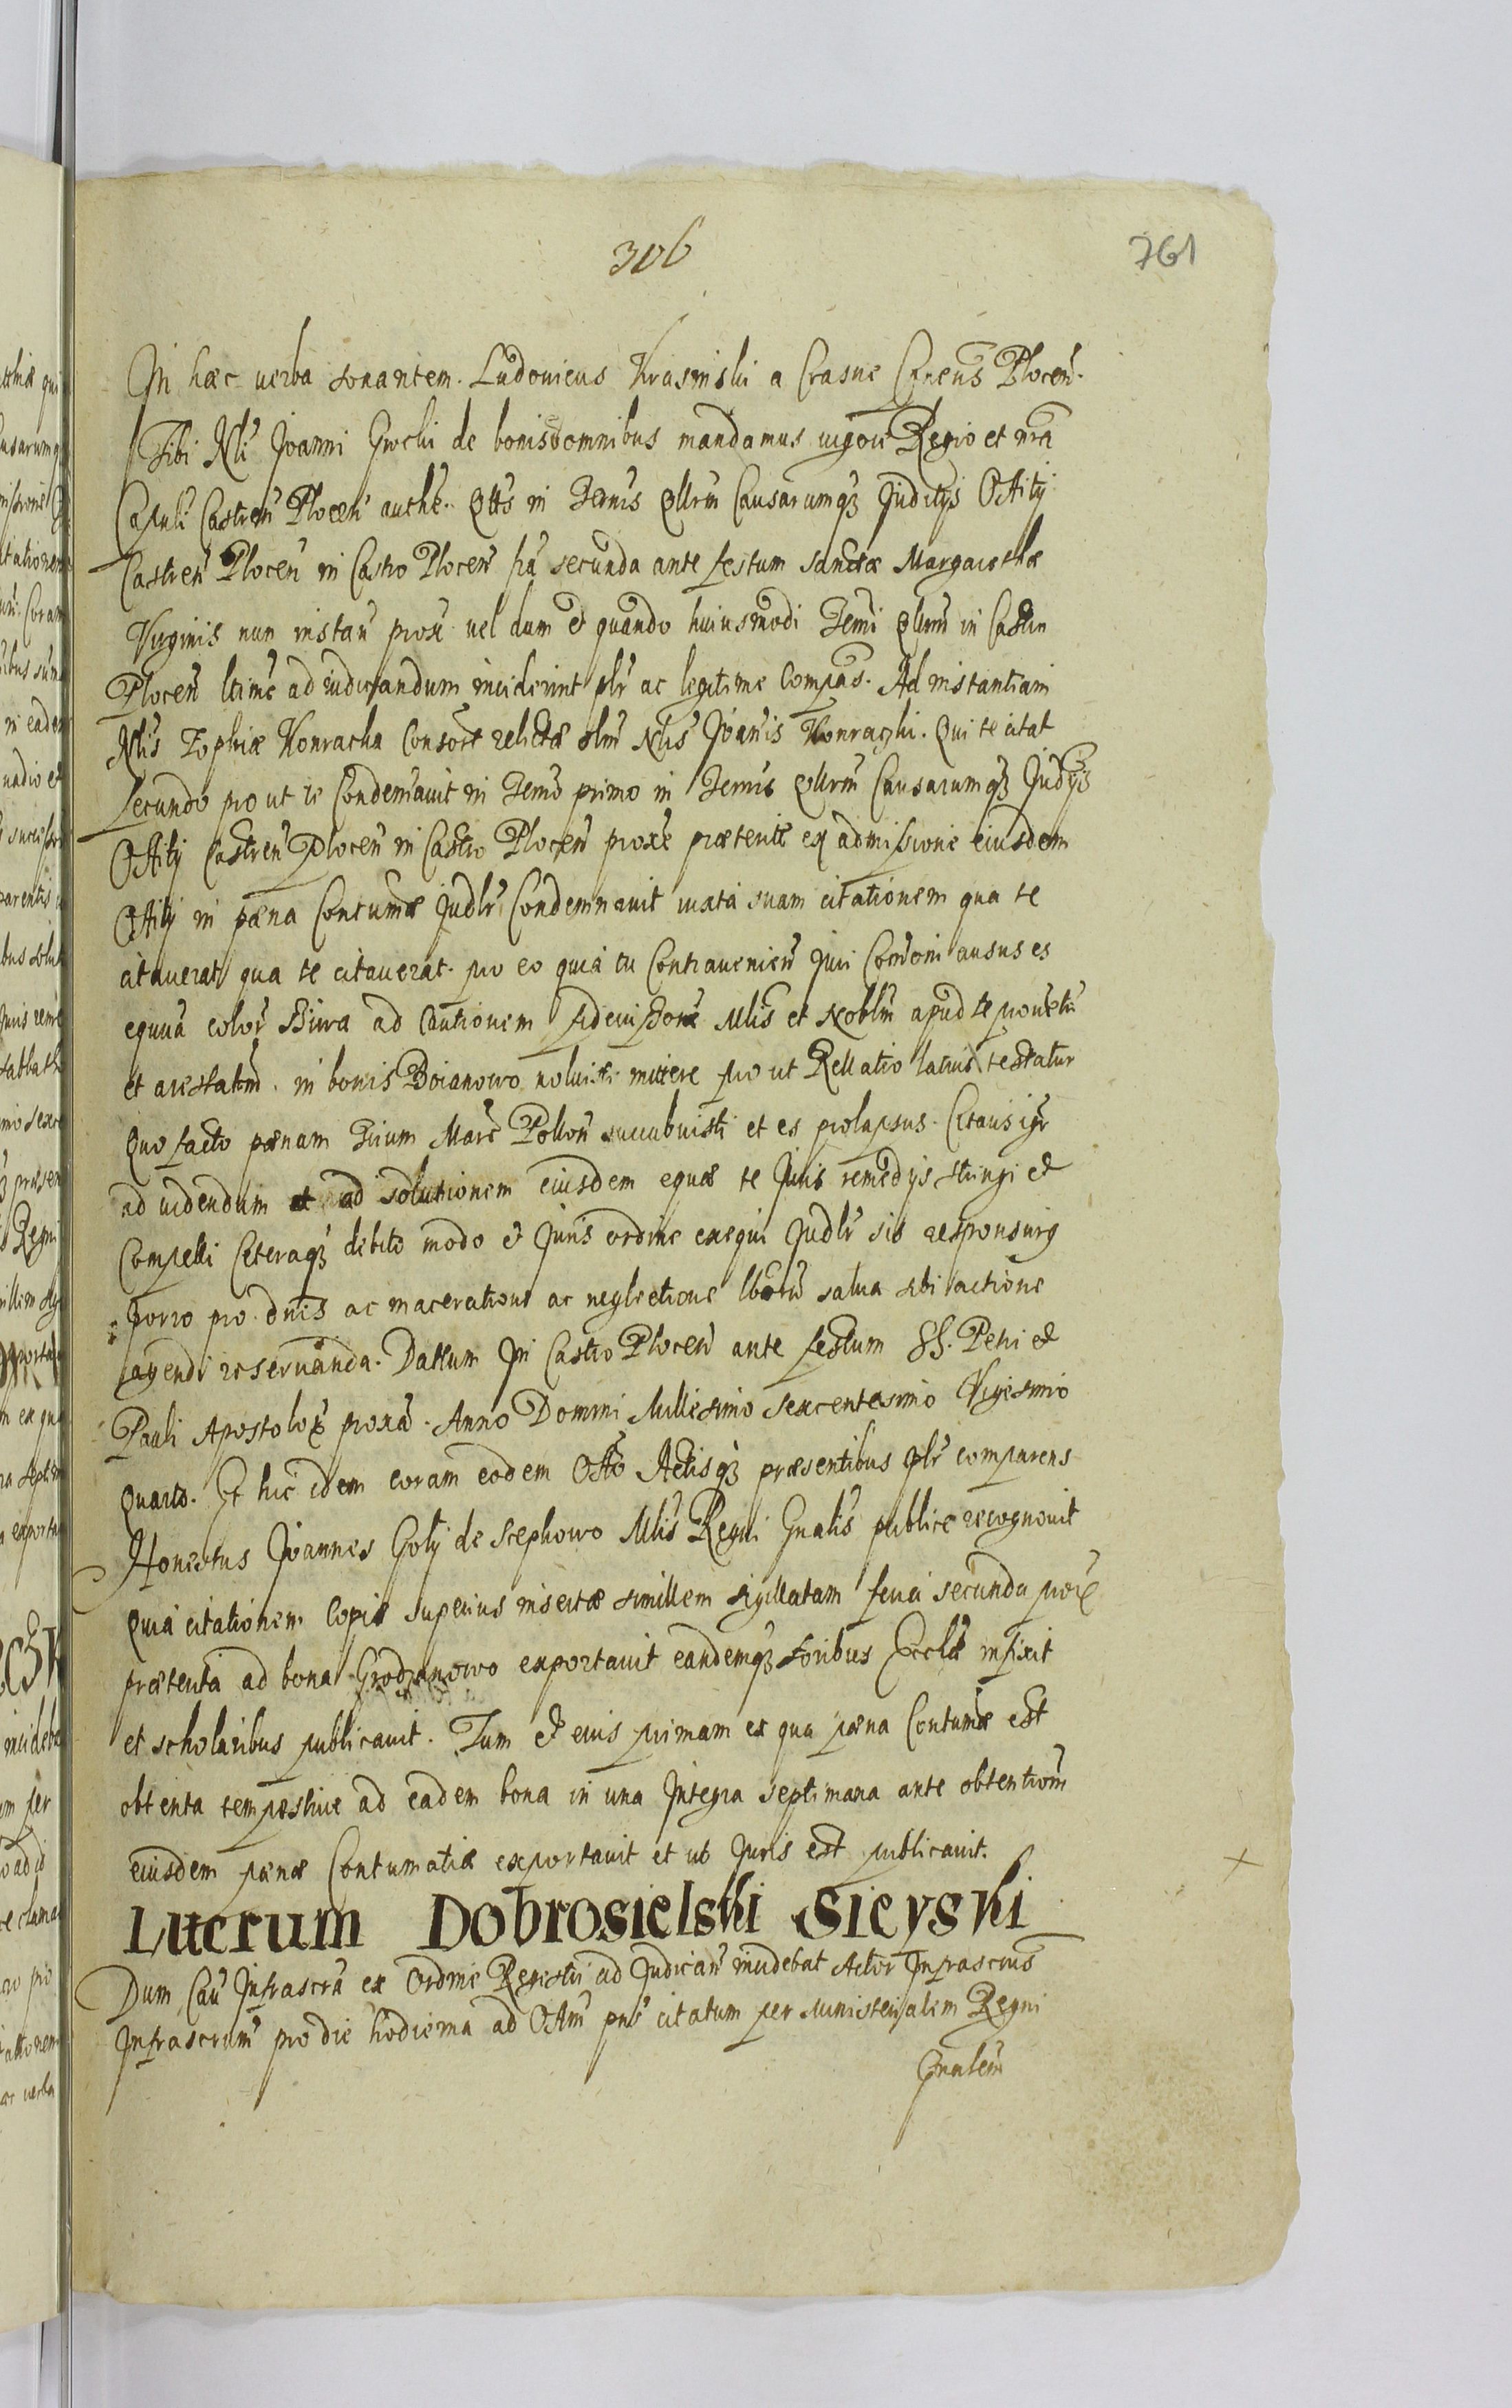 306
761
In hæc verba sonantem. Ludovicus Krasinski a Crasne Cpneus Plocen.
Tibi Nli Joanni Grochi de bonis omnibus mandamus vigore Regio et nra
Capuli Castren Plocen authe. Qtts in Termis Qllrm Causarumq Juditijs Offitij
Castren Plocen in Castro Plocen fa secunda ante festum sanctæ Margarethæ
Virginis nun instan prox vel dum et quando huiusmodi Termi Qllrm in Castro
Plocen ltime ad iudicandum inciderint plr ac legitime Compas. Ad instantiam
Nlis Zophiæ Konracka Consort relictæ olm Nlis Joanis Konraczki. Qui te citat
secundo pro ut te Condemnavit in Termo primo in Termis Qllrm Causarumq Judijs
Offitij Castren Plocen in Castro Plocen proxe præterite ex admissione eiusdem
Offitij in pæna Contumæ Judlr Condemnavit iuxta suam citationem qua te
citaverat qua te citaverat. pro eo quia tu Contravenien Juri Comoni ausus es
equua color Siwa ad Cautionem fideiussoriæ Mlis et Noblm apud te
et arestatm. in bonis Boianowo noluisti mittere pro ut Rellatio latius testatur
Quo facto pænam Trium Marc Pollon succubuisti et es prolapsus. Citaris igr
ad videndum et ad solutionem eiusdem equæ te Juris remedijs stringi et
Compelli Ceteraq debito modo et Juris ordine exequi Judlr sis responsurg
Porro pro dnis ac maceratione ac neglectione lborū salva sibi actione
agendi reservanda. Dattum In Castro Plocen ante festum SS. Petri et
Pauli Apostolor proxa. Anno Domini Millesimo Sexcentesimo Vigesimo
Quarto. Et hic idem coram eodem Offo Actisq præsentibus plr comparens
Honestus Joannes Goly de Scephowo Mlis Regni Gnalis publice recognovit
Quia citationem Copiæ superius insertæ simillem sigillatam feria secunda
præterita ad bona Grodzanowo exportavit eandemq foribus Ecclæ infixit
et scholaribus publicavit. Tum et eius primam ex qua pæna Contumæ est
obtenta tempestive ad eadem bona in una Integra septimana ante obtentiom
eiusdem pænæ Contumatiæ exportavit et ut Juris est publicavit.
Lucrum Dobrosielski Sieyski
Dum Cau Infrascra ex Ordine Regestri ad Judican incidebat Actor Infrascrus
Infrascrum pro die hodierna ad Offm pns citatum per Ministerialem Regni
Gnalem